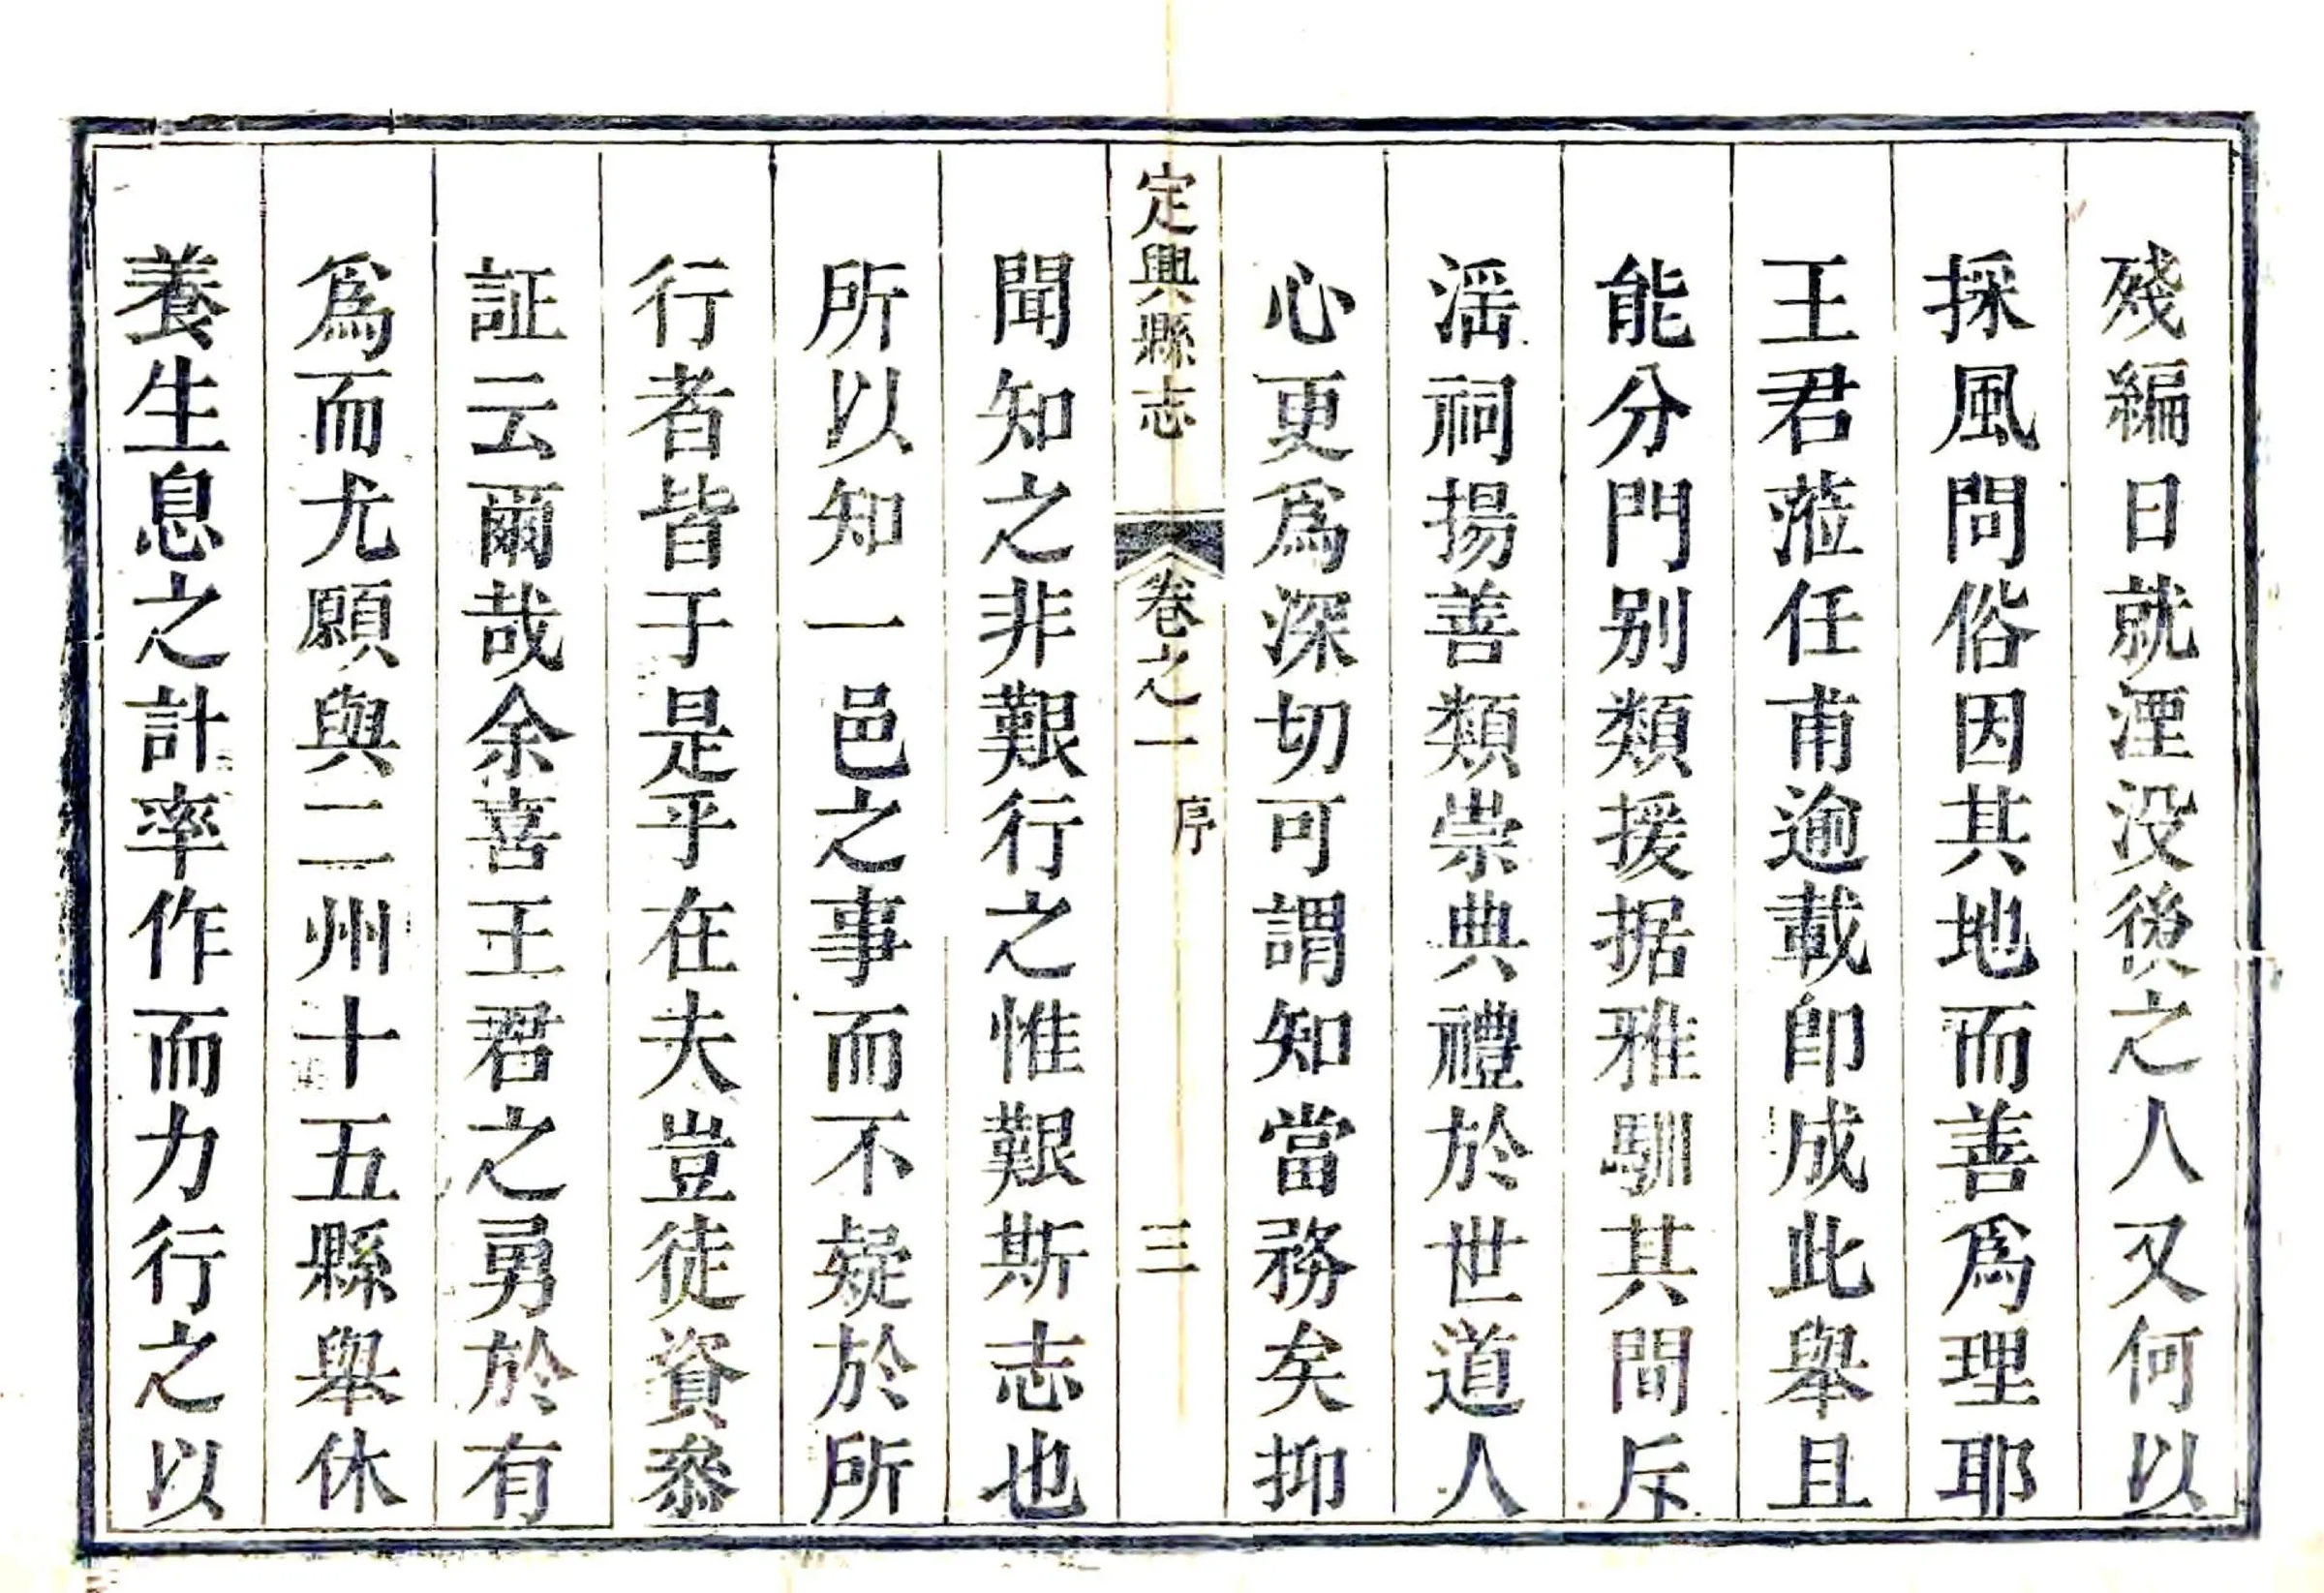 殘編日就湮没後之人又何以
採風問俗因其地而善爲理耶
王君蒞任甫逾載即成此舉且
能分門别類援据雅馴其間斥
滛祠揚善類崇典禮於世道人
心更爲深切可謂知當務矣抑
定興縣志 卷之一 序 三
聞知之非艱行之惟艱斯志也
所以知一邑之事而不疑於所
行者皆于是乎在夫豈徒資叅
証云爾哉余喜王君之勇於有
爲而尤願與二州十五縣舉休
養生息之計率作而力行之以